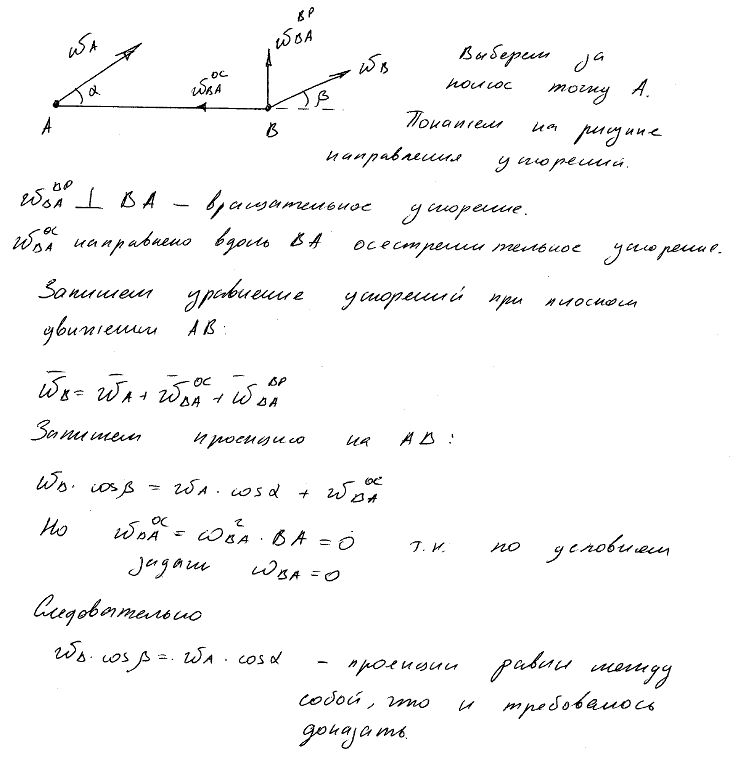 w̄_A α A w̄_BA^ОС w̄_BA^ВР B w̄_B β
Выберем за
полюс точку A.
Покажем на рисунке
направления ускорений.
w̄_BA^ВР ⊥ BA – вращательное ускорение.
w̄_BA^ОС направлено вдоль BA осестремительное ускорение.
Запишем уравнение ускорений при плоском
движении AB:
w̄_B = w̄_A + w̄_BA^ОС + w̄_BA^ВР
Запишем проекцию на AB:
w_B · cosβ = w_A · cosα + w_BA^ОС
Но w_BA^ОС = ω_BA^2 · BA = 0 т.к. по условиям
задачи ω_BA = 0
Следовательно
w_B · cosβ = w_A · cosα – проекции равны между
собой, что и требовалось
доказать.